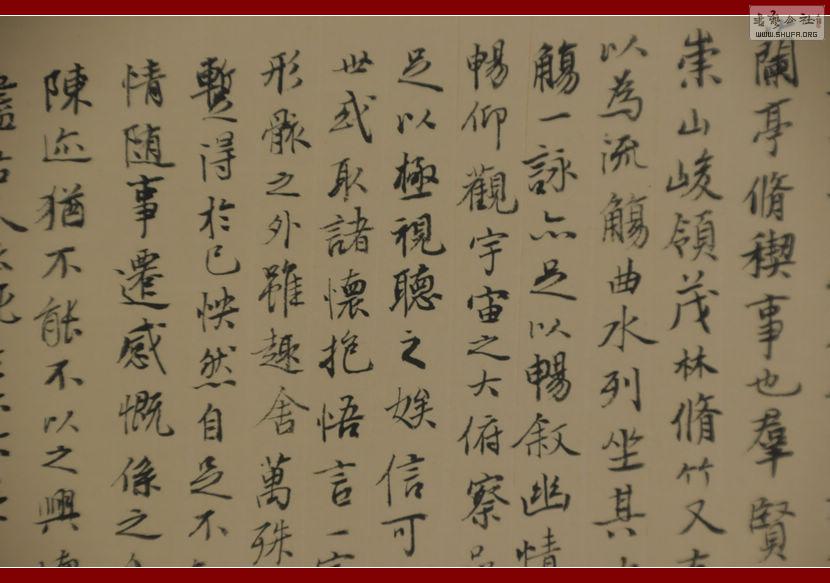 蘭亭脩稧事也羣賢
崇山峻領茂林脩竹又有
以為流觴曲水列坐其
觴一詠亦足以暢叙幽情
暢仰觀宇宙之大俯察品
足以極視聽之娛信可
世或取諸懷抱悟言一室
形骸之外雖趣舍萬殊
暫得於己怏然自足不
情随事遷感慨係之
陳迹猶不能不以之興懷
WWW.SHUFA.ORG